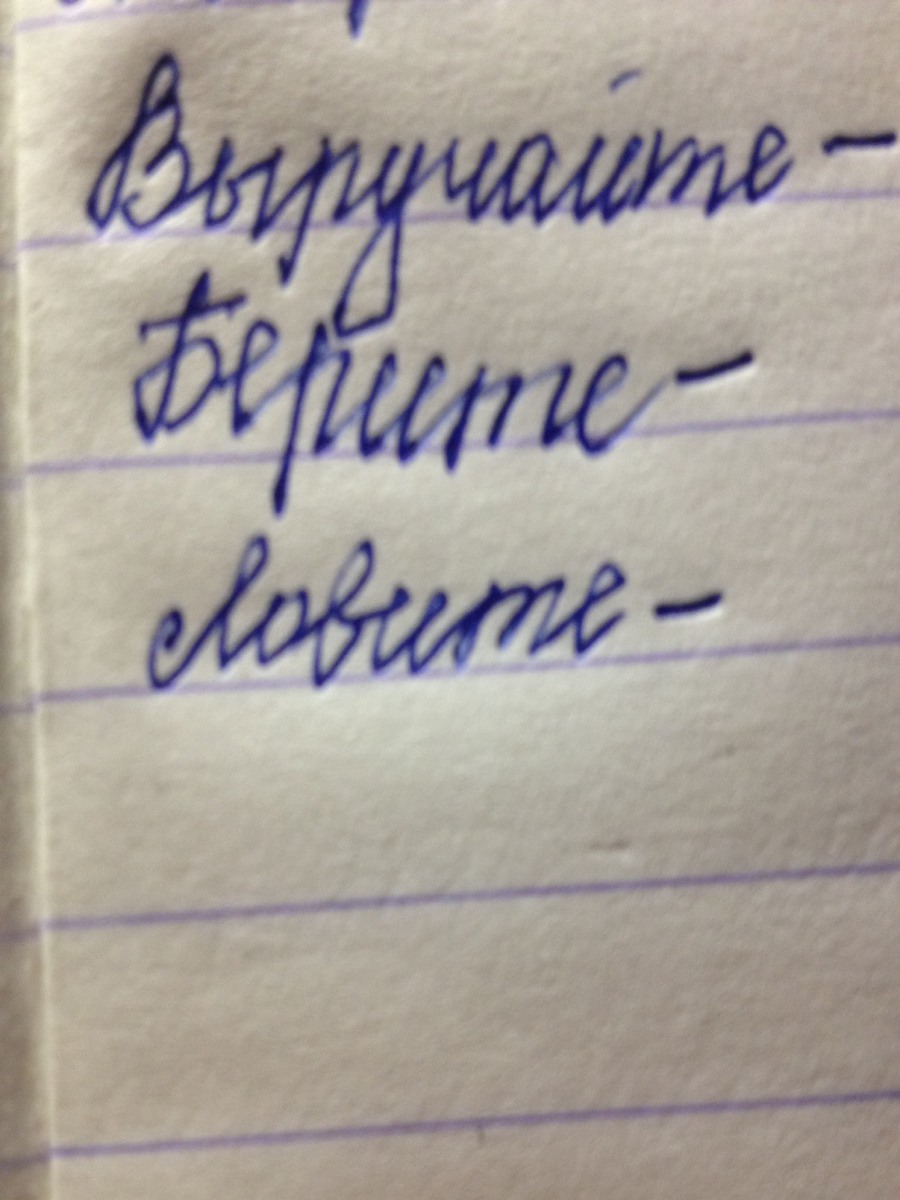 Выручайте –
Берите –
Ловите –